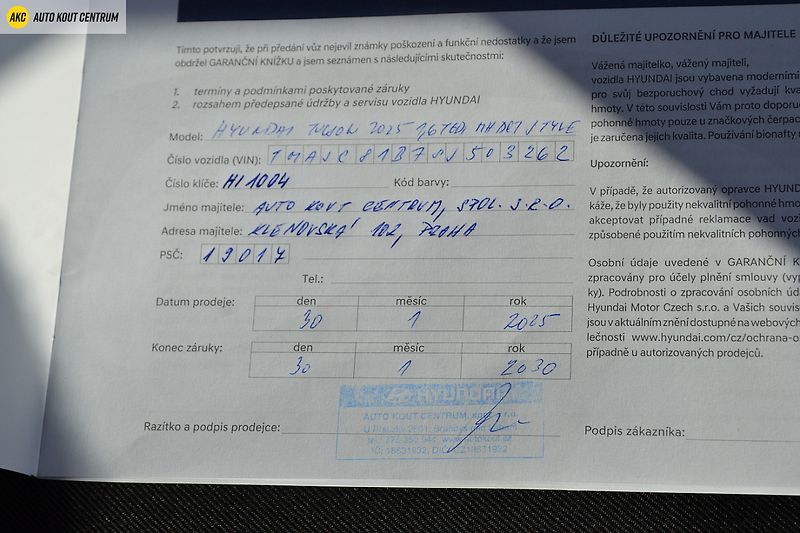 AKC AUTO KOUT CENTRUM
Tímto potvrzuji, že při předání vůz nejevil známky poškození a funkční nedostatky a že jsem
obdržel GARANČNÍ KNÍŽKU a jsem seznámen s následujícími skutečnostmi:
1. termíny a podmínkami poskytované záruky
2. rozsahem předepsané údržby a servisu vozidla HYUNDAI
Model: HYUNDAI TUCSON 2025 1,6 TGDI STYLE
Číslo vozidla (VIN): TMAJC81B7SJ503262
Číslo klíče: HI1004 Kód barvy:
Jméno majitele: AUTO KOUT CENTRUM, SPOL. S.R.O.
Adresa majitele: KLENOVSKÁ 102, PRAHA
PSČ: 19017
Tel.:
Datum prodeje: den měsíc rok
30 1 2025
Konec záruky: den měsíc rok
30 1 2030
HYUNDAI
AUTO KOUT CENTRUM, s.r.o.
Razítko a podpis prodejce:
Podpis zákazníka:
DŮLEŽITÉ UPOZORNĚNÍ PRO MAJITELE
Vážená majitelko, vážený majiteli,
vozidla HYUNDAI jsou vybavena moderními
pro svůj bezporuchový chod vyžadují kva
hmoty. V této souvislosti Vám proto doporu
pohonné hmoty pouze u značkových čerpac
je zaručena jejich kvalita. Používání bionafty
Upozornění:
V případě, že autorizovaný opravce HYUND
káže, že byly použity nekvalitní pohonné hmot
akceptovat případné reklamace vad voz
způsobené použitím nekvalitních pohonných
Osobní údaje uvedené v GARANČNÍ K
zpracovány pro účely plnění smlouvy (vyp
ky). Podrobnosti o zpracování osobních úd
Hyundai Motor Czech s.r.o. a Vašich souvis
jsou v aktuálním znění dostupné na webových
lečnosti www.hyundai.com/cz/ochrana-o
případně u autorizovaných prodejců.